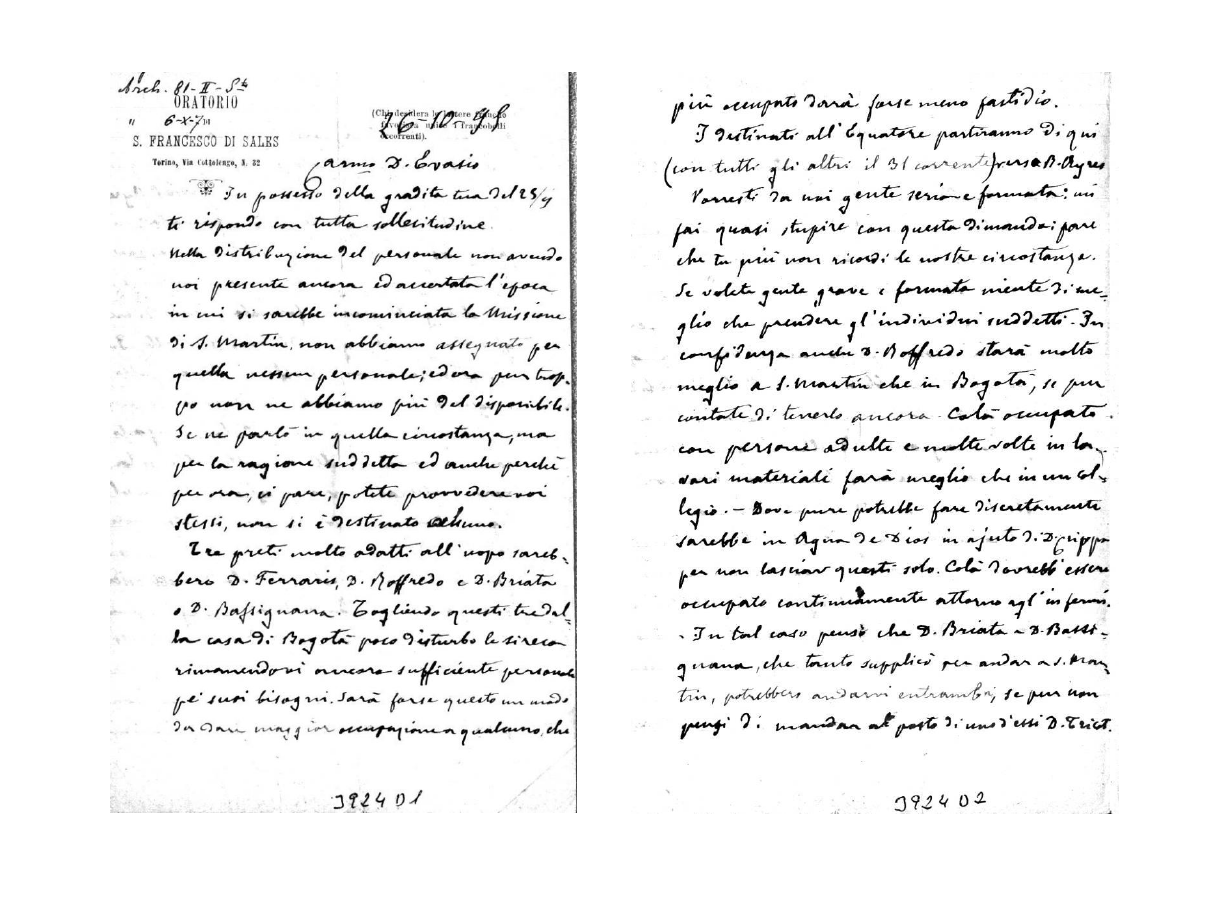 Arch. 81-II-5ta
ORATORIO
" 6-X-7/DI
S. FRANCESCO DI SALES
Torino, Via Cottolengo, N. 32
(Chi desidera lettere
francobolli
occorrenti).
26-10-98
Carmo D. Evasio
In possesso della gradita tua del 25/9
ti rispondo con tutta sollecitudine.
Nella distribuzione del personale non avendo
noi presente ancora ed accertata l'epoca
in cui si sarebbe incominciata la Missione
di S. Martin, non abbiamo assegnato per
quella nessun personale; ed ora pur trop-
po non ne abbiamo più del disponibile.
Se ne parlò in quella circostanza, ma
per la ragione suddetta ed anche perchè
per ora, ci pare, potete provvedere voi
stessi, non si è destinato
Tre preti molto adatti all'uopo sareb-
bero D. Ferraris, D. Roffredo e D. Briata
o D. Bassignana. Togliendo questi tre dal-
la casa di Bogotà poco disturbo le si reca
rimanendovi ancora sufficiente personale
pe' suoi bisogni. Sarà forse questo un modo
da dare maggior occupazione a qualcuno, che
J924 D1
più occupato darà forse meno fastidio.
I destinati all'Equatore partiranno di qui
(con tutti gli altri il 31 corrente) verso B. Ayres
Vorresti da noi gente seria e formata: mi
fai quasi stupire con questa dimanda: pare
che tu più non ricordi le nostre circostanze.
Se volete gente grave e formata niente di me-
glio che prendere gl'individui suddetti. In
confidenza anche D. Roffredo starà molto
meglio a S. Martin che in Bogotà, se pur
contate di tenerlo ancora. Colà occupato
con persone adulte e molte volte in la-
vori materiali farà meglio che in un col-
legio. - Dove pure potrebbe fare discretamente
sarebbe in Agua de Dios in ajuto di D. Crippa
per non lasciar questi solo. Colà dovrebb'essere
occupato continuamente attorno agl'infermi.
- In tal caso penso che D. Briata e D. Bassi-
gnana, che tanto supplicò per andar a S. Mar
tin, potrebbero andarvi entrambi, se pur non
pensi di mandar al posto di uno d'essi D. Tricot.
J924 D2